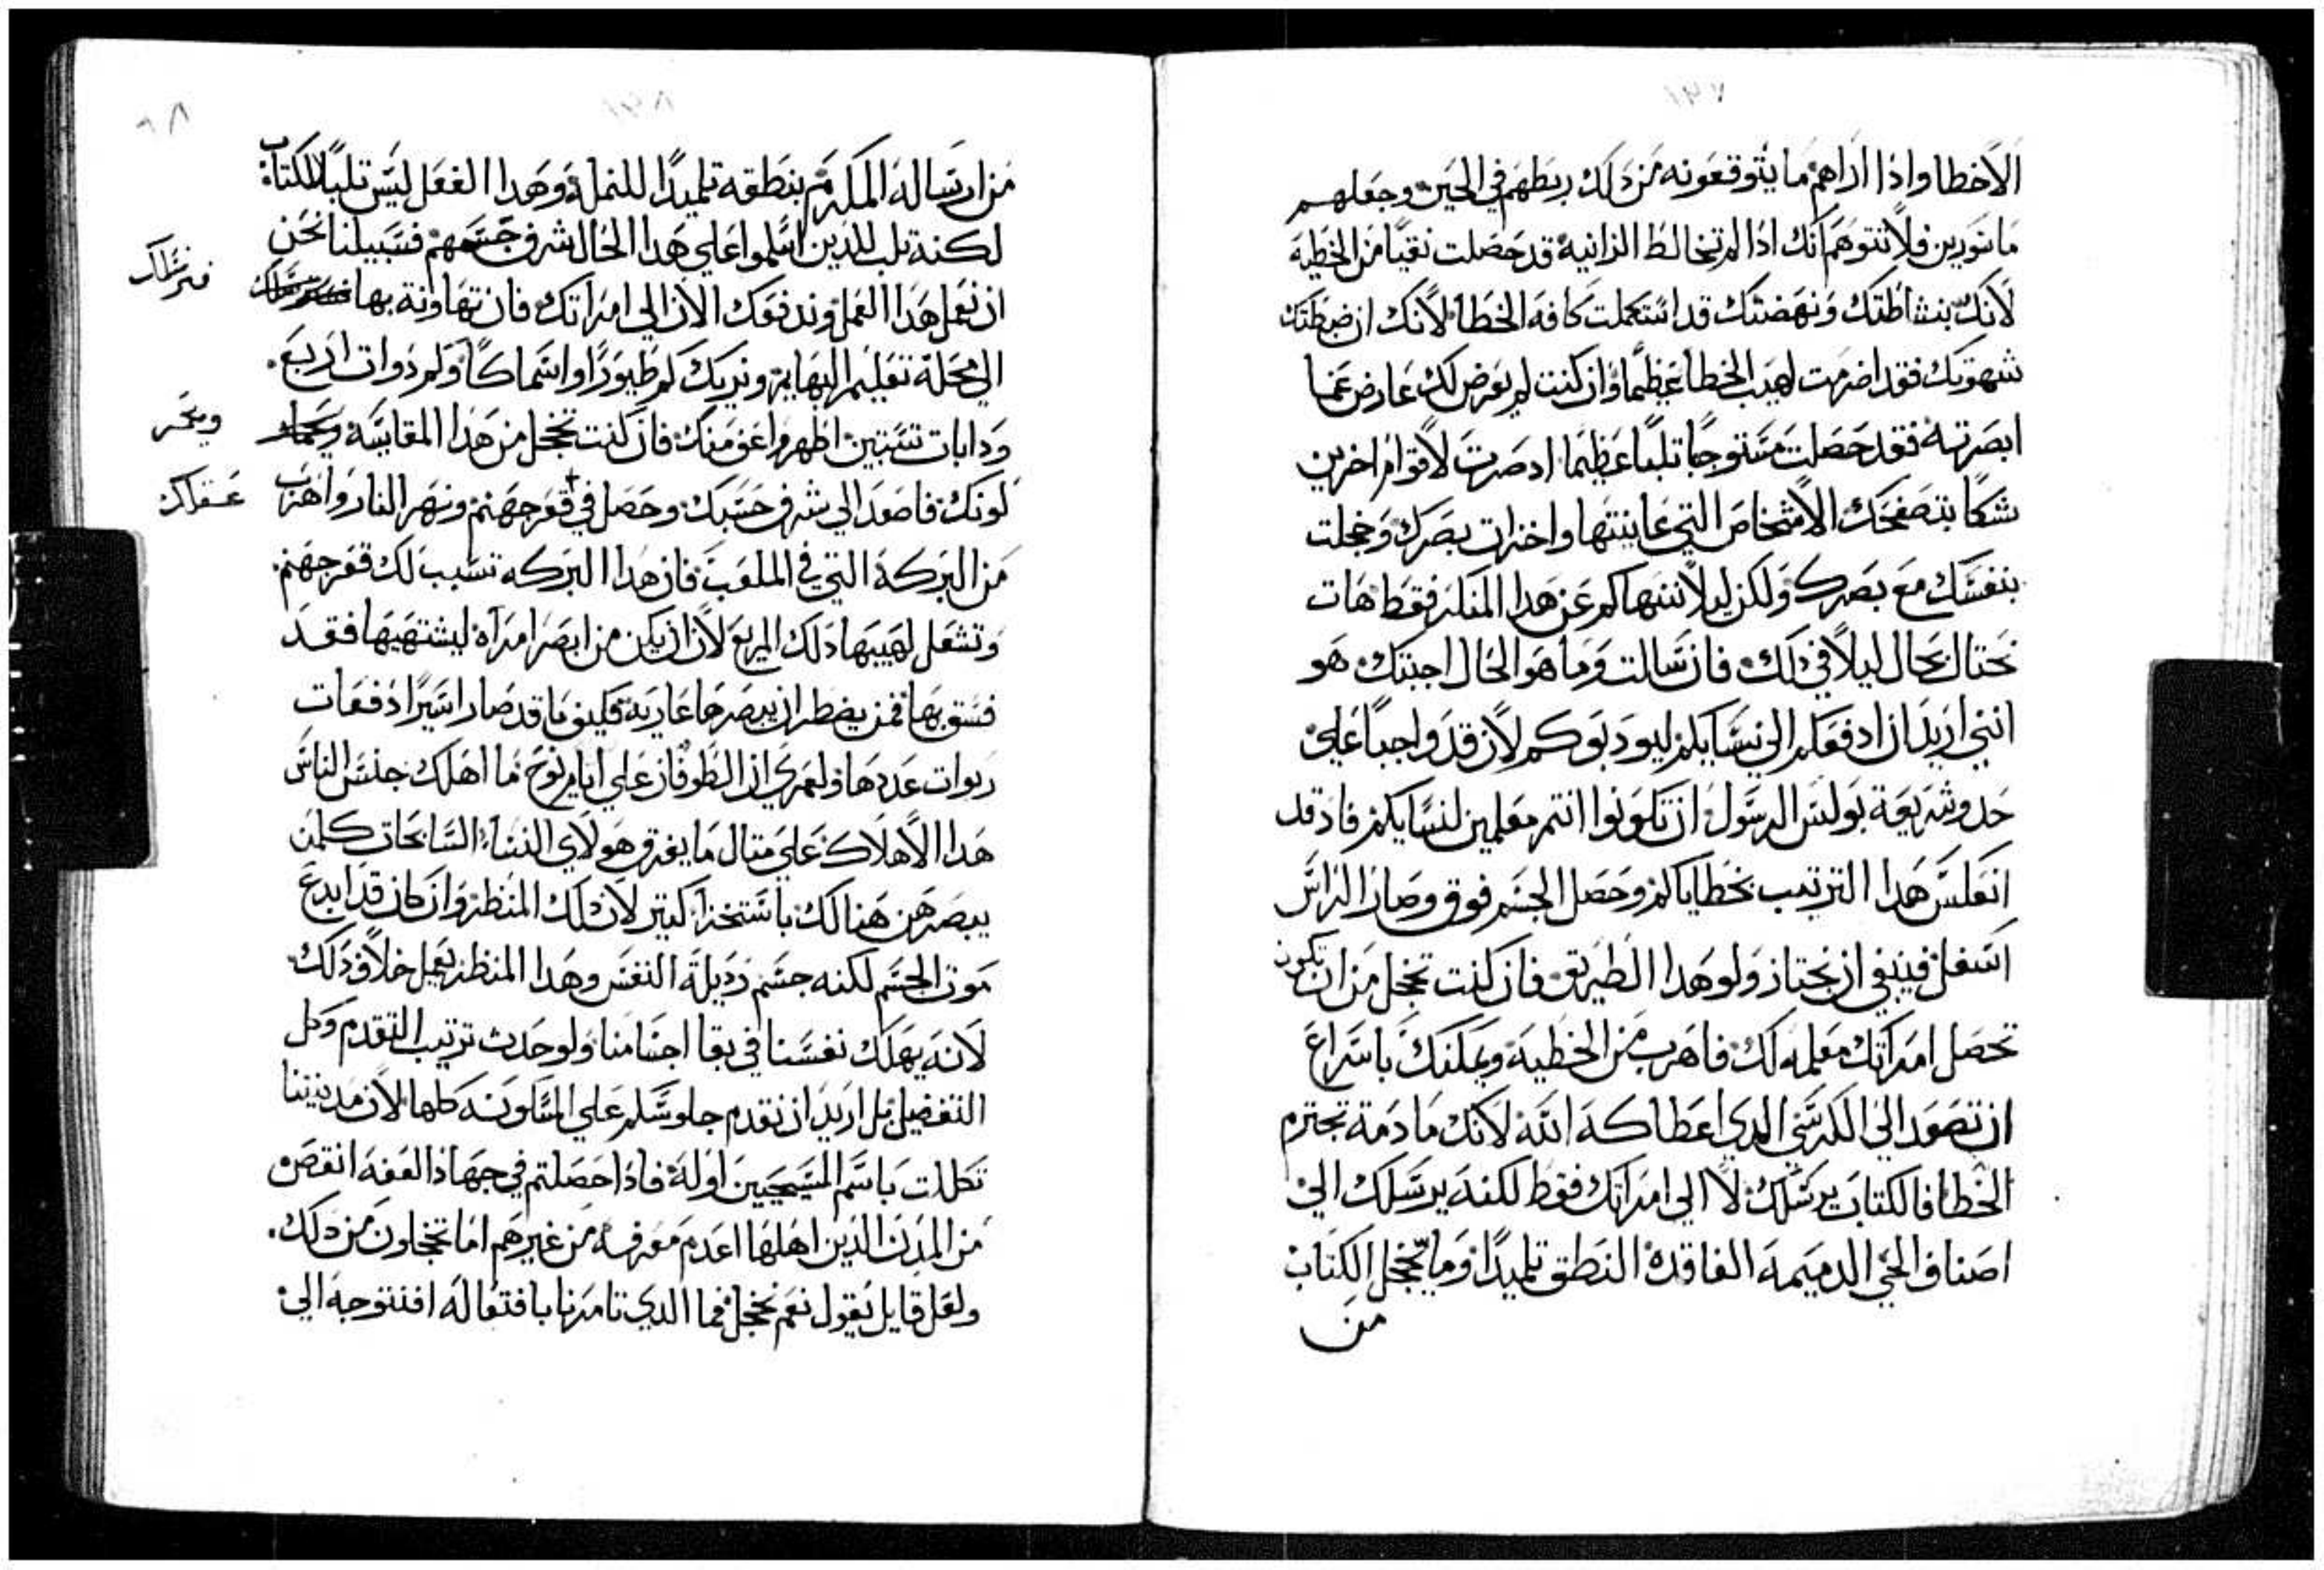 الاخطا واذا اراهم ما يتوقعونه من ذلك ربطهم في الحين وجعلهم
ماسورين فلا تتوهم انك اذا لم تخالط الزانية قد حصلت نقيا من الخطيه
لانك بنشاطتك ونهضتك قد استكملت كافة الخطا لانك ان ضبطتك
شهوتك فقد اضرمت لهيب الخطا عظيما وان كنت لم يعرض لك عارض عما
ابصرته فقد حصلت مستوجبا تلبا عظيما اد صرت لاقوام اخرين
شكا بتصفحك الاشخاص التي عاينتها واخترات بصرك وخجلت
بنفسك مع بصرك ولكن ليلا ننهاكم عن هدا المنكر فقط هات
نحتال بحال ليلا في ذلك فان سالت وما هو الحال اجبتك هو
انني اريد ان ادفعكم الي نسايكم ليودبوكم لان قد واجبا علي
حدو شريعة بولس الرسول ان تكونوا انتم معلمين لنسايكم فاد قد
انعكس هدا الترتيب بخطاياكم وحصل الجسم فوق وصار الراس
اسفل فينبغي ان نجتاز ولو هدا الطريق فان كنت تخجل من ان تكون
تحصل امراتك معلمه لك فاهرب من الخطيه ويمكنك باسراع
ان تصعد الي الكرسي الدي اعطاكه الله لانك ما دمة تجترم
الخطا فالكتاب يرسلك لا الي امراتك فقط لكنه يرسلك الي
اصناف الحي الدميمه الفاقدة النطق تلميدا وما يخجل الكتاب
من
من ارساله المكرم بنطقه تلميدا للنملة وهدا الفعل ليس تلبا للكتاب
لكنة تلب للدين اسلموا علي هدا الحال شرف جسمهم فسبيلنا نحن
ان نعمل هدا العمل وندفعك الان الي امراتك فان تهاونة بها
فنرسلك
الي محلة تعليم البهايم ونريك كم طيورا واسماكا وكم دوات اربع
ودابات تستبين اظهر واعف منك فان كنت تخجل من هدا المقايسه
ويحمر
لونك فاصعد الي شرف حسبك وحصل في قعر جهنم ونهر النار واهرب
عقلك
من البركة التي في الملعب فان هدا البركه تسبب لك قعر جهنم
وتشعل لهيبها دلك المريع لان ان يكن من ابصر امراة ليشتهيها فقد
فسق بها فمن يضطر ان يبصرها عارية فكيف ما قد صار اسيرا دفعات
ربوات عددها ولعمري ان الطوفان علي ايام نوح ما اهلك جنس الناس
هدا الاهلاك علي متال ما يغرق هولاي النسا السابحات كلمن
يبصرهن هنالك باستخزا كتير لان دلك المنظر وان كان قد ابدع
موت الجسم لكنه جسم رديلة النفس وهدا المنظر يعمل خلاف دلك
لانه يهلك نفسنا في بقا اجسامنا ولو حدث ترتيب التقدم وكل
التفضيل بل اريد ان نقدم جلوسكم علي المسكونه كلها لان مدينتنا
تكللت باسم المسيحيين اولة فادا حصلتم في جهاد العفه انقص
من المدن الدين اهلها اعدم معرفه من غيرهم اما تخجلون من دلك
ولعل قايل يقول نعم نخجل فما الدي تامرنا بافتعاله افنتوجه الي